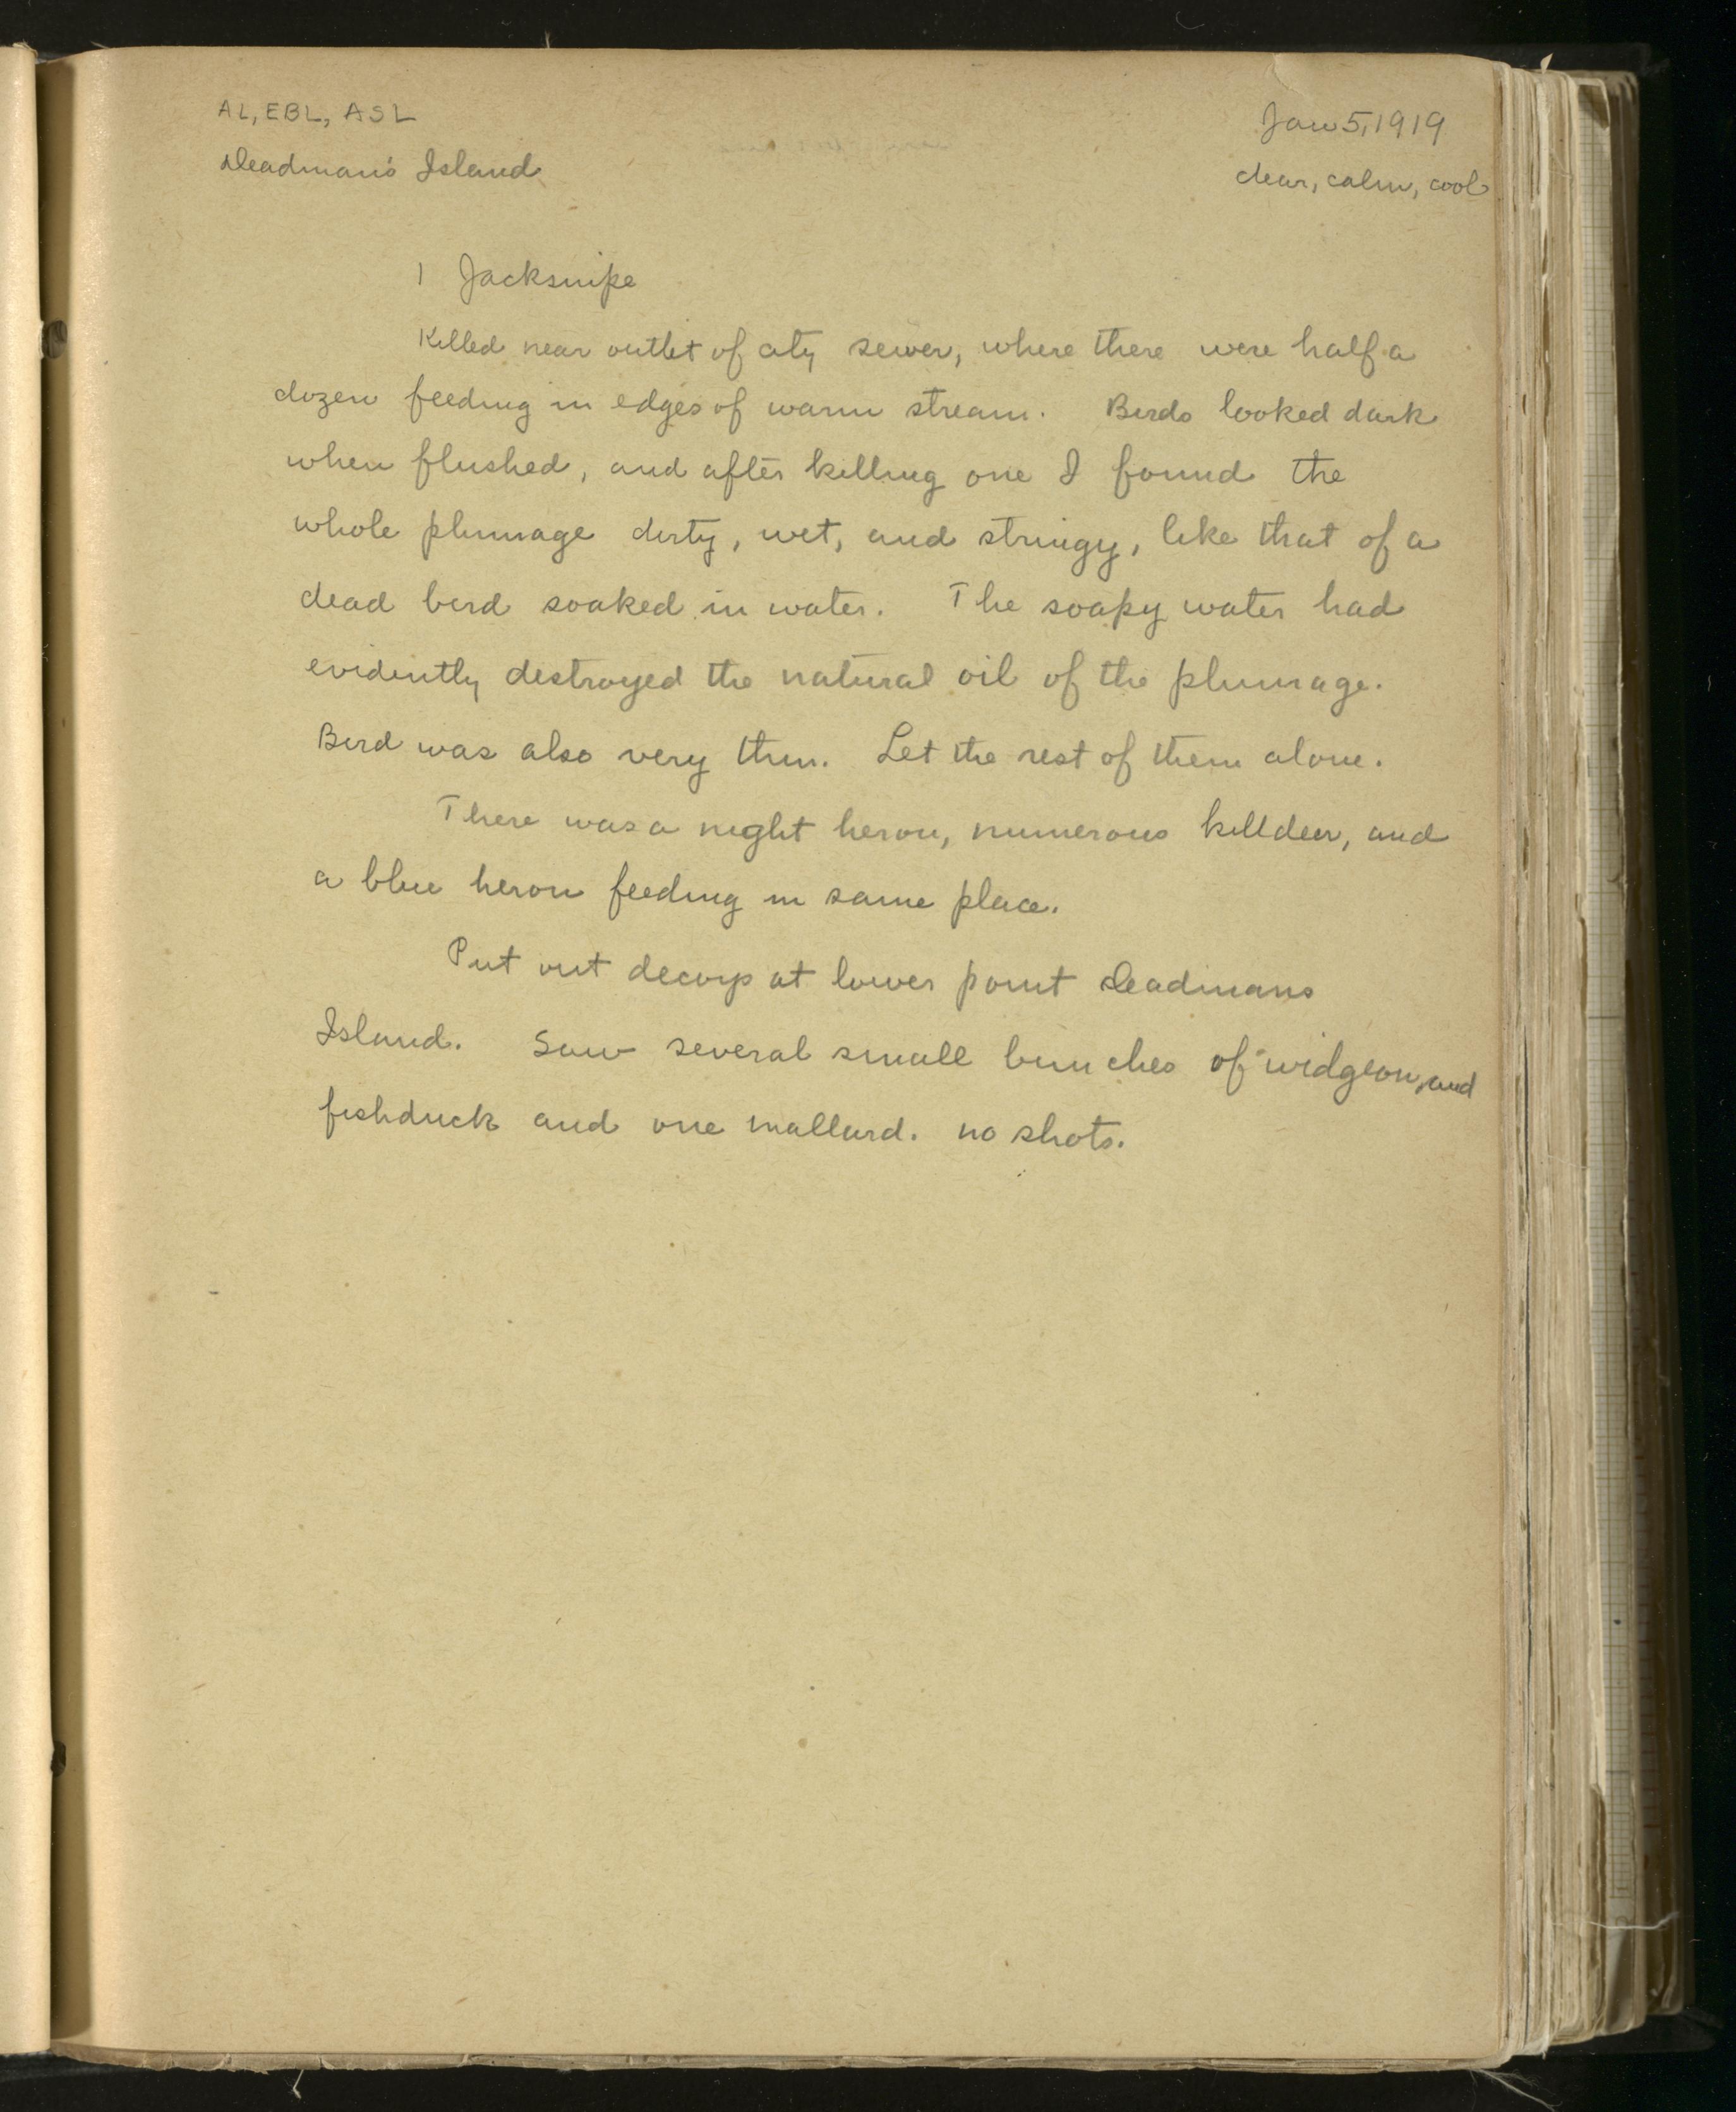 AL, EBL, ASL
Jan 5, 1919
Deadman's Island
clear, calm, cool
1 Jacksnipe
Killed near outlet of city sewer, where there were half a
dozen feeding in edges of warm stream. Birds looked dark
when flushed, and after killing one I found the
whole plumage dirty, wet, and stringy, like that of a
dead bird soaked in water. The soapy water had
evidently destroyed the natural oil of the plumage.
Bird was also very thin. Let the rest of them alone.
There was a night heron, numerous killdeer, and
a blue heron feeding in same place.
Put out decoys at lower point Deadmans
Island. Saw several small bunches of widgeon, and
fishduck and one mallard. no shots.